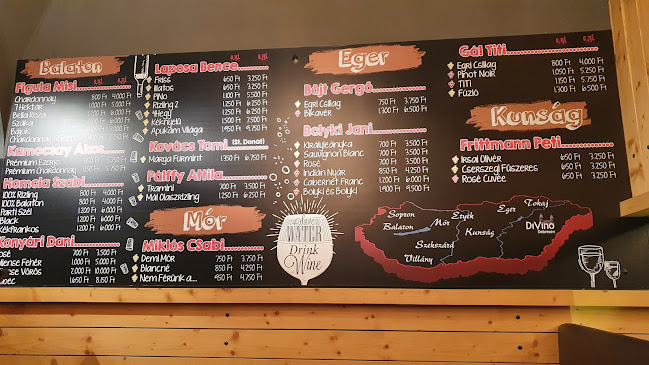 Balaton
Figula Misi
Chardonnay 800 Ft 4.000 Ft
7 Hektár
Bella Róza
Száka
Bajoló
Kamocsay Ákos
Prémium Ezerjó
Prémium Chardonnay
Homola Szabi
100% Rizling 800 Ft 4.000 Ft
100% Balaton 800 Ft 4.000 Ft
Parti Szél
Black
Kékfrankos
Konyári Dani
Rosé 700 Ft 3.500 Ft
Fehér 1.000 Ft 5.000 Ft
Vörös 2.000 Ft 10.000 Ft
1.650 Ft 8.150 Ft
Laposa Bence
Friss 650 Ft 3.250 Ft
Illatos 650 Ft 3.250 Ft
PiNo 1.100 Ft 5.500 Ft
Rizling 2 1.250 Ft 6.250 Ft
4Hegy 1.250 Ft 6.250 Ft
Kéknyelű
Apukám Világa 950 Ft 4.750 Ft
Kovács Tomi (St. Donát)
Marga Furmint 1.350 Ft 6.750 Ft
Pálffy Attila
Tramini 700 Ft 3.500 Ft
Mál Olaszrizling 1.250 Ft 6.250 Ft
Mór
Miklós CSabi
Demi Mór 750 Ft 3.750 Ft
Blancné 850 Ft 4.250 Ft
Nem Férünk a... 950 Ft 4.750 Ft
Eger
Böjt Gergő
Egri Csillag 750 Ft 3.750 Ft
Bikavér
Bolyki Jani
Királyleányka 700 Ft 3.500 Ft
Sauvignon Blanc 700 Ft 3.500 Ft
Rosé 700 Ft 3.500 Ft
Indián Nyár 850 Ft 4.250 Ft
Cabernet Franc
Bolyki és Bolyki 1.900 Ft 9.500 Ft
Save
WATER
Drink
Wine
Gál Titi
Egri Csillag 800 Ft 4.000 Ft
Pinot Noir 1.050 Ft 5.250 Ft
TiTi 1.150 Ft 5.750 Ft
Fúzió 1.300 Ft 6.500 Ft
Kunság
Frittmann Peti
Irsai Olivér 650 Ft 3.250 Ft
Cserszegi Fűszeres 650 Ft 3.250 Ft
Rosé Cuvée 650 Ft 3.250 Ft
Sopron
Balaton
Mór
Etyek
Eger
Tokaj
Kunság
Szekszárd
Villány
DiVino
Debrecen